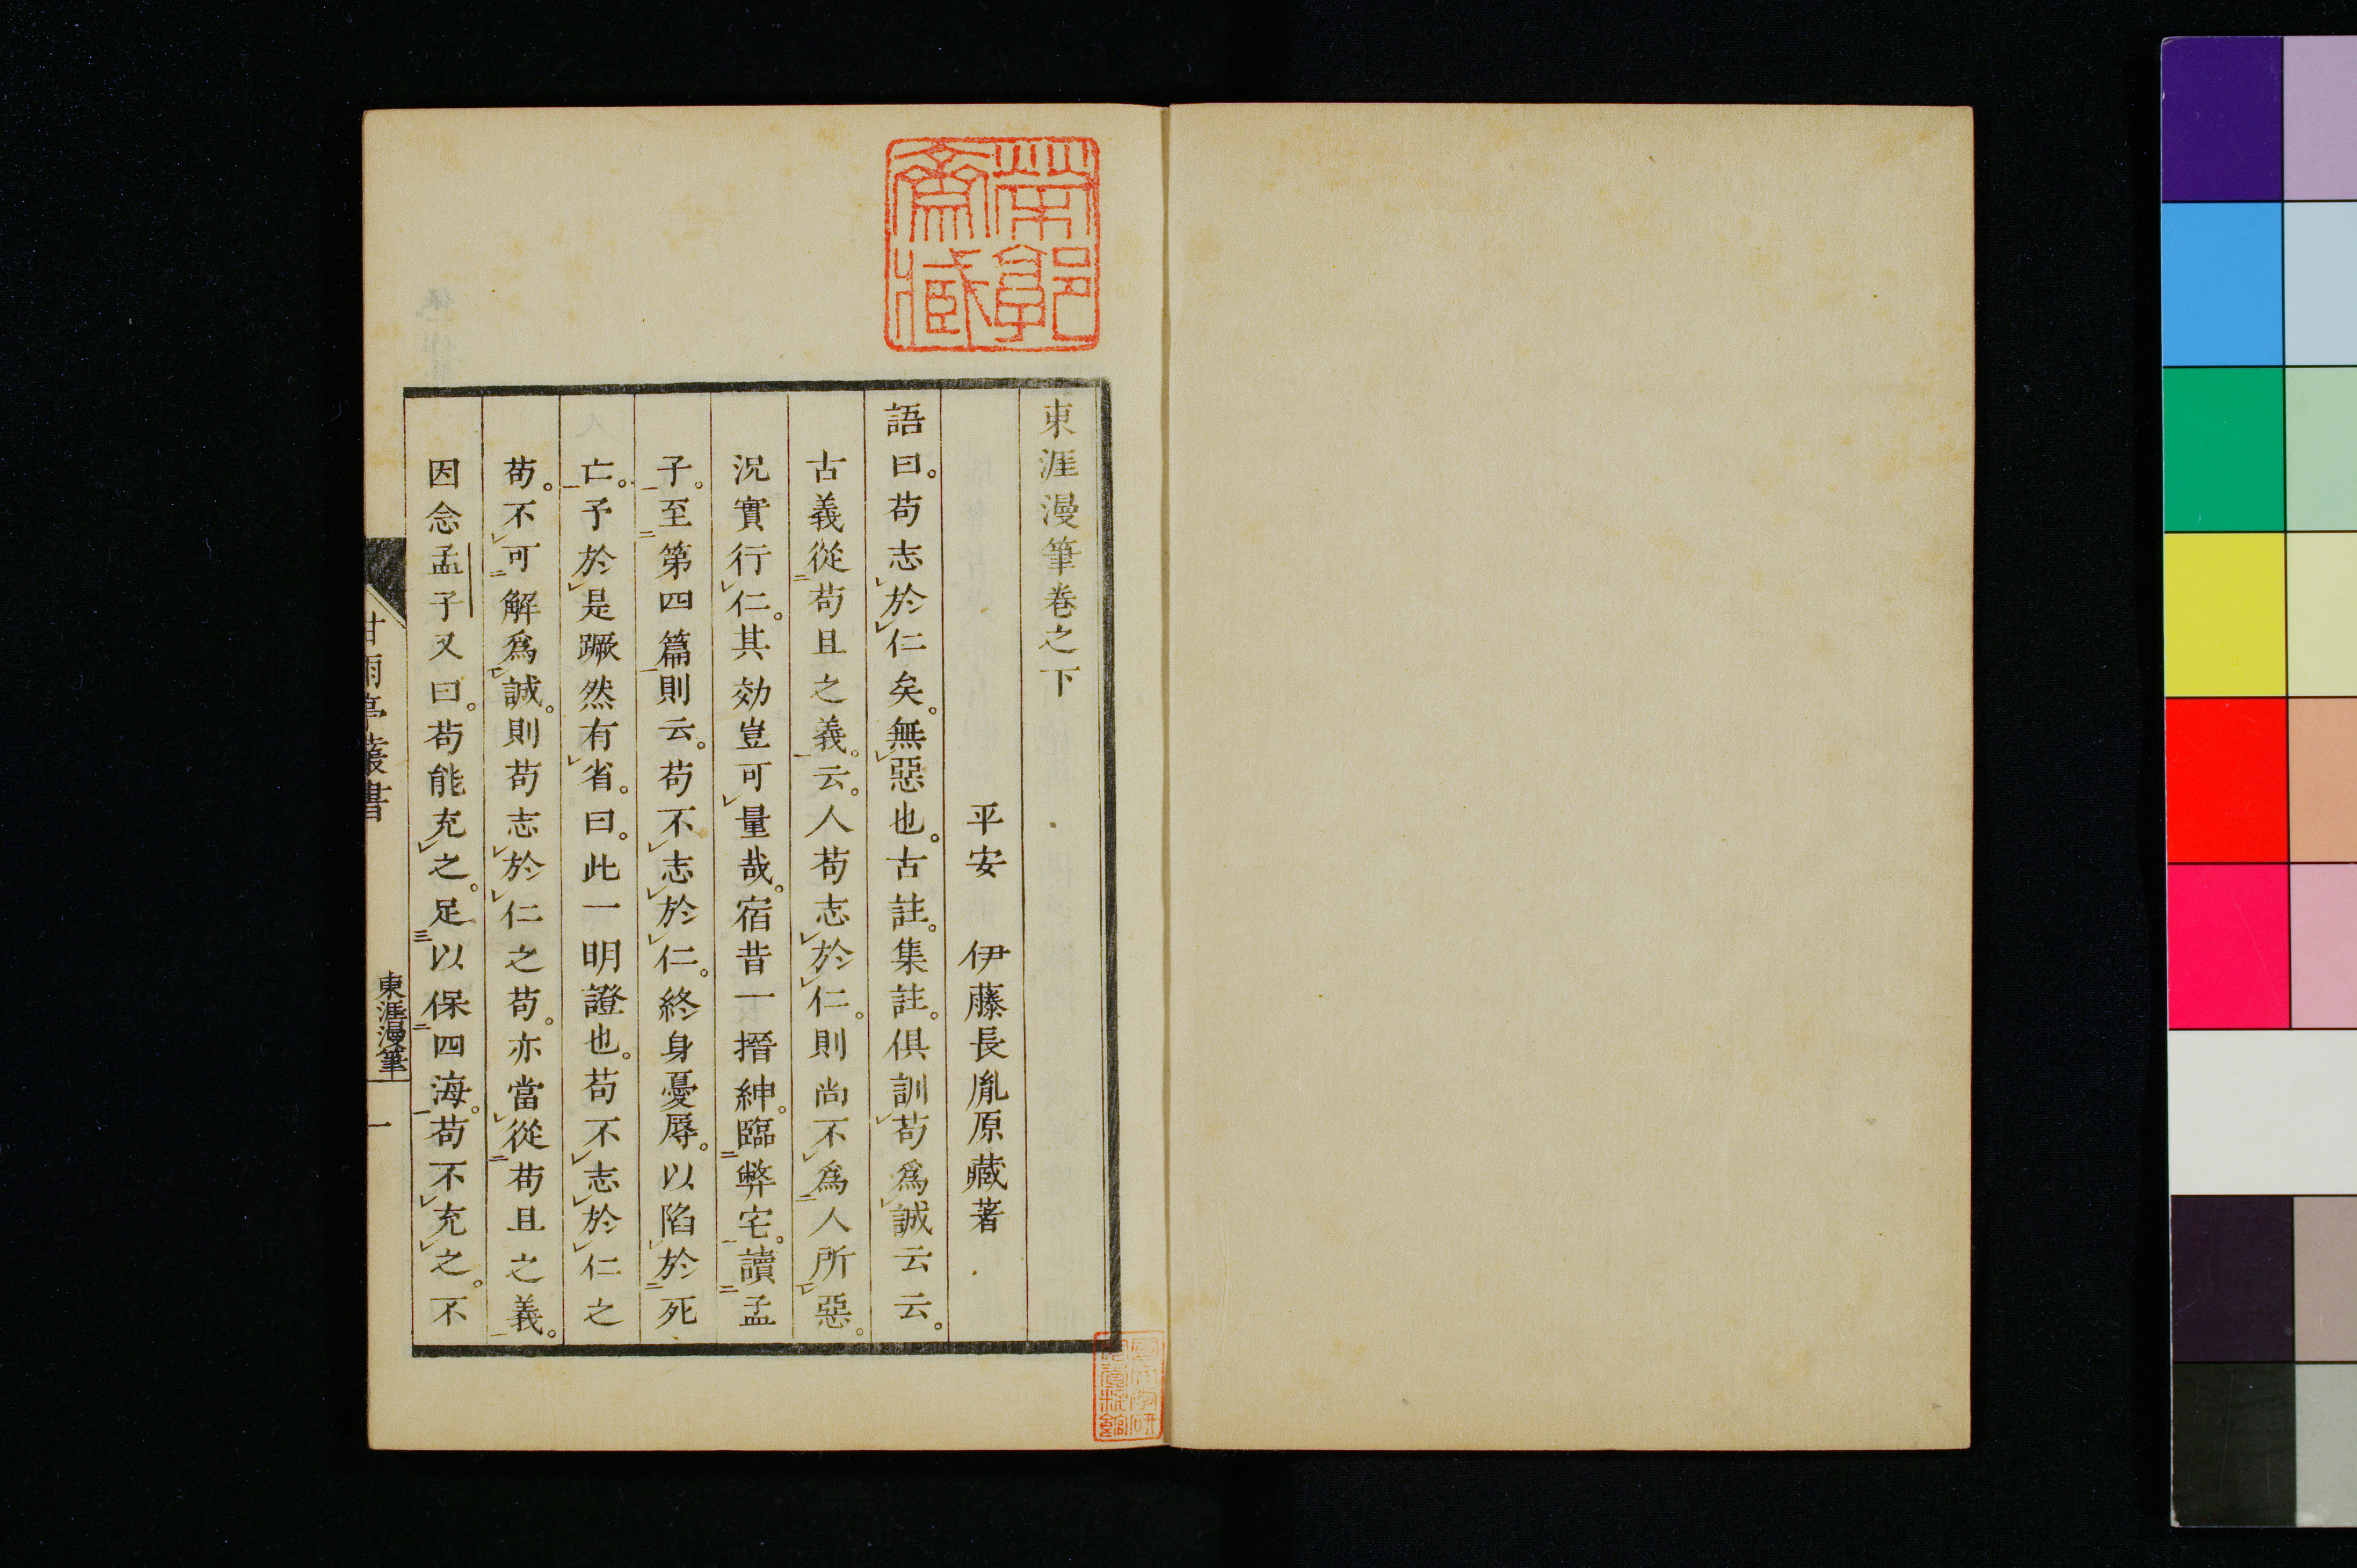 東涯漫筆卷之下
平安　伊藤長胤原藏著
語曰。苟志於仁矣。無惡也。古註。集註。俱訓苟爲誠云云。
古義從苟且之義。云。人苟志於仁。則尚不爲人所惡。
況實行仁。其効豈可量哉。宿昔一搢紳。臨弊宅。讀孟
子。至第四篇則云。苟不志於仁。終身憂辱。以陷於死
亡。予於是蹶然有省。曰。此一明證也。苟不志於仁之
苟。不可解爲誠。則苟志於仁之苟。亦當從苟且之義。
因念孟子又曰。苟能充之。足以保四海。苟不充之。不
甘雨亭叢書
東涯漫筆
一